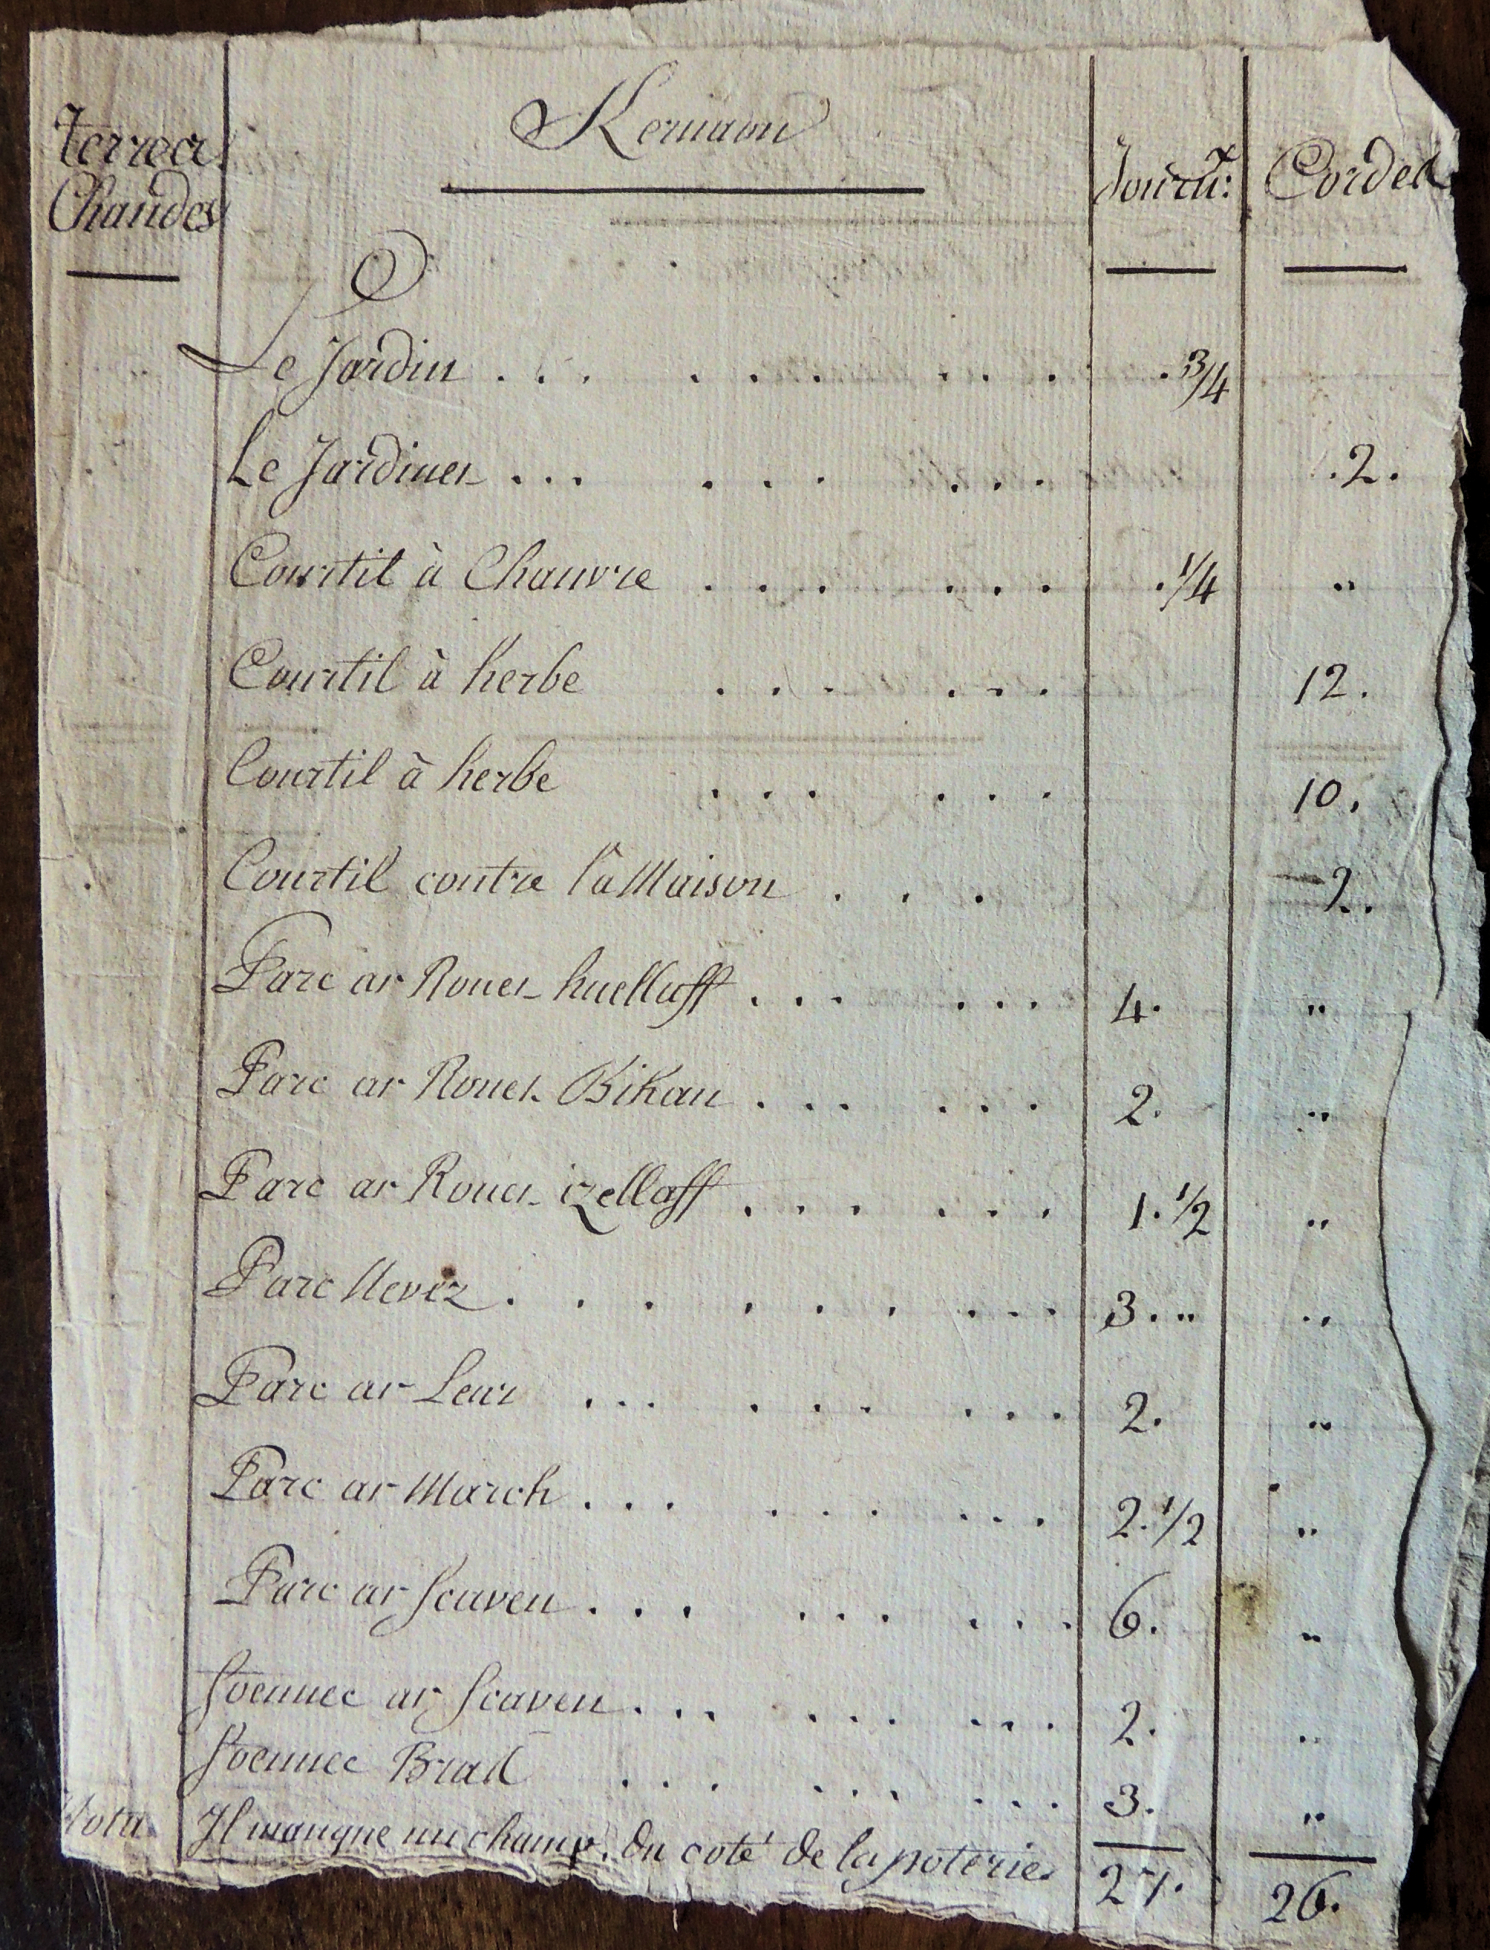 terres Chaudes
Kernaou
Journx: Cordes
Le Jardin . . . . . . . . . . 3/4
Le Jardiner . . . . . . . . . .2.
Courtil à Chanvre . . . . . . . 1/4 "
Courtil à herbe . . . . . . 12.
Courtil à herbe . . . . . . 10.
Courtil contre la Maison . . . 2.
Parc ar Roues huellaff . . . . . . 4. "
Parc ar Roues Bihan . . . . . . 2. "
Parc ar Roues izellaff . . . . . . 1. 1/2 "
Parc Nevez . . . . . . . . . 3. " "
Parc ar Leur . . . . . . . . . 2. "
Parc ar March . . . . . . . . . 2. 1/2 "
Parc ar scaven . . . . . . . . . 6. "
foennec ar scaven . . . . . . . . . 2. "
foennec Bras . . . . . . . . . 3. "
Nota Il manque un champ. du coté de la poterie. 27. 26.